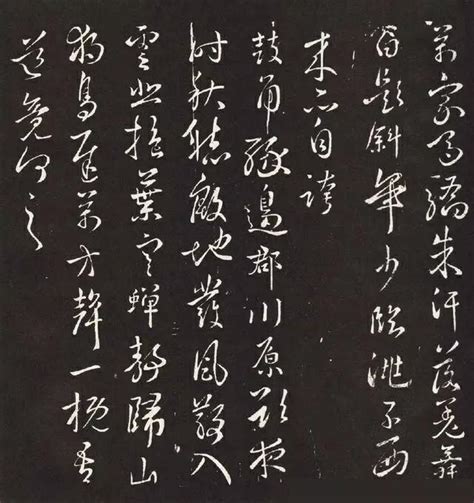 萬家馬驕朱汗落羌舞
白題斜年少臨洮子西
来亦自誇
鼓角緣邊郡川原欲夜
時秋聽殷地發風散入
雲悲抱葉寒蟬靜歸山
獨鳥遲萬方聲一概吾
道竟何之